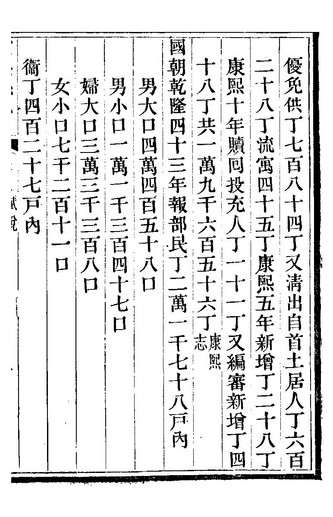 優免供丁七百八十四丁又淸出自首土居人丁六百
二十八丁流寓四十五丁康熙五年新增丁二十八丁
康熙十年贖囘投充人丁一十一丁又編審新增丁四
十八丁共一萬九千六百五十六丁康熙志
國朝乾隆四十三年報部民丁二萬一千七十八戶內
男大口四萬四百五十八口
男小口一萬一千三百四十七口
婦大口三萬三千三百八口
女小口七千二百十一口
衞丁四百二十七戶內